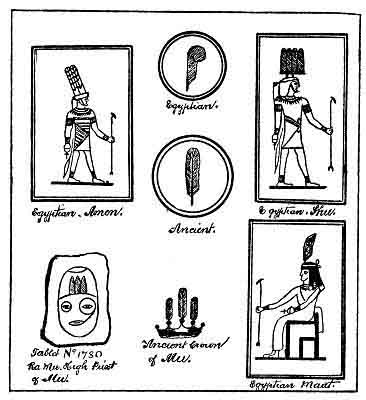 Egyptian.
Egyptian. Amon.
Egyptian. Shu.
Ancient.
Tablet No 1780
Ra Mu. High Priest
of Mu.
Ancient Crown
of Mu.
Egyptian Maat.